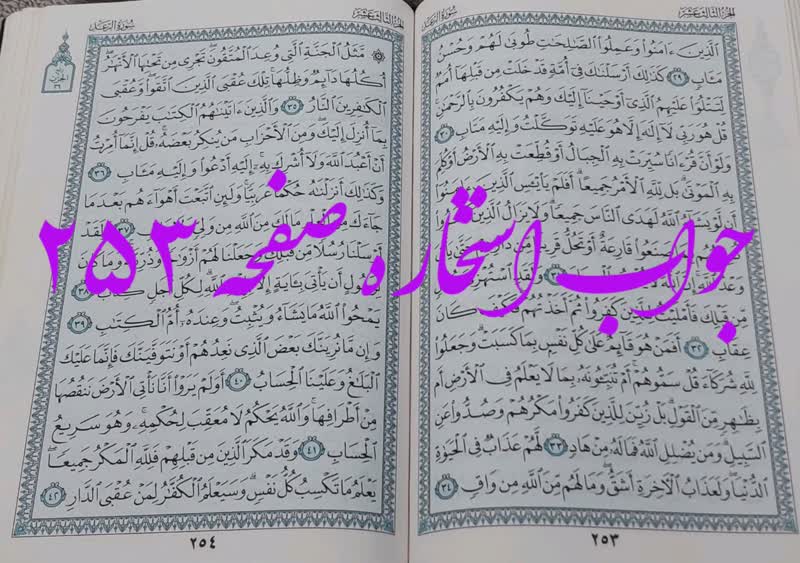 الجزء الثالث عشر
سورة الرعد
ٱلَّذِينَ ءَامَنُوا۟ وَعَمِلُوا۟ ٱلصَّـٰلِحَـٰتِ طُوبَىٰ لَهُمْ وَحُسْنُ
مَـَٔابٍ ٢٩ كَذَٰلِكَ أَرْسَلْنَـٰكَ فِىٓ أُمَّةٍ قَدْ خَلَتْ مِن قَبْلِهَآ أُمَمٌ
لِّتَتْلُوَا۟ عَلَيْهِمُ ٱلَّذِىٓ أَوْحَيْنَآ إِلَيْكَ وَهُمْ يَكْفُرُونَ بِٱلرَّحْمَـٰنِ
قُلْ هُوَ رَبِّى لَآ إِلَـٰهَ إِلَّا هُوَ عَلَيْهِ تَوَكَّلْتُ وَإِلَيْهِ مَتَابِ ٣٠
وَلَوْ أَنَّ قُرْءَانًا سُيِّرَتْ بِهِ ٱلْجِبَالُ أَوْ قُطِّعَتْ بِهِ ٱلْأَرْضُ أَوْ كُلِّمَ
بِهِ ٱلْمَوْتَىٰ بَل لِّلَّهِ ٱلْأَمْرُ جَمِيعًا أَفَلَمْ يَا۟يْـَٔسِ ٱلَّذِينَ ءَامَنُوٓا۟
أَن لَّوْ يَشَآءُ ٱللَّهُ لَهَدَى ٱلنَّاسَ جَمِيعًا وَلَا يَزَالُ ٱلَّذِينَ
صَنَعُوا۟ قَارِعَةٌ أَوْ تَحُلُّ قَرِيبًا مِّن
وَعْدُ ٱللَّهِ إِنَّ ٱللَّهَ لَا ٣١ وَلَقَدِ ٱسْتُهْزِئَ
مِّن قَبْلِكَ فَأَمْلَيْتُ لِلَّذِينَ كَفَرُوا۟ ثُمَّ أَخَذْتُهُمْ فَكَيْفَ كَانَ
عِقَابِ ٣٢ أَفَمَنْ هُوَ قَآئِمٌ عَلَىٰ كُلِّ نَفْسٍۭ بِمَا كَسَبَتْ وَجَعَلُوا۟
لِلَّهِ شُرَكَآءَ قُلْ سَمُّوهُمْ أَمْ تُنَبِّـُٔونَهُۥ بِمَا لَا يَعْلَمُ فِى ٱلْأَرْضِ أَم
بِظَـٰهِرٍ مِّنَ ٱلْقَوْلِ بَلْ زُيِّنَ لِلَّذِينَ كَفَرُوا۟ مَكْرُهُمْ وَصُدُّوا۟ عَنِ
ٱلسَّبِيلِ وَمَن يُضْلِلِ ٱللَّهُ فَمَا لَهُۥ مِنْ هَادٍ ٣٣ لَّهُمْ عَذَابٌ فِى ٱلْحَيَوٰةِ
ٱلدُّنْيَا وَلَعَذَابُ ٱلْـَٔاخِرَةِ أَشَقُّ وَمَا لَهُم مِّنَ ٱللَّهِ مِن وَاقٍ ٣٤
٢٥٣
سورة الرعد
الجزء الثالث عشر
مَّثَلُ ٱلْجَنَّةِ ٱلَّتِى وُعِدَ ٱلْمُتَّقُونَ تَجْرِى مِن تَحْتِهَا ٱلْأَنْهَـٰرُ
أُكُلُهَا دَآئِمٌ وَظِلُّهَا تِلْكَ عُقْبَى ٱلَّذِينَ ٱتَّقَوا۟ وَّعُقْبَى
ٱلْكَـٰفِرِينَ ٱلنَّارُ ٣٥ وَٱلَّذِينَ ءَاتَيْنَـٰهُمُ ٱلْكِتَـٰبَ يَفْرَحُونَ
بِمَآ أُنزِلَ إِلَيْكَ وَمِنَ ٱلْأَحْزَابِ مَن يُنكِرُ بَعْضَهُۥ قُلْ إِنَّمَآ أُمِرْتُ
أَنْ أَعْبُدَ ٱللَّهَ وَلَآ أُشْرِكَ بِهِۦٓ إِلَيْهِ أَدْعُوا۟ وَإِلَيْهِ مَـَٔابِ ٣٦
وَكَذَٰلِكَ أَنزَلْنَـٰهُ حُكْمًا عَرَبِيًّا وَلَئِنِ ٱتَّبَعْتَ أَهْوَآءَهُم بَعْدَ مَا
جَآءَكَ مِنَ ٱلْعِلْمِ مَا لَكَ مِنَ ٱللَّهِ مِن وَلِىٍّ ٣٧ وَلَقَدْ
أَرْسَلْنَا رُسُلًا مِّن قَبْلِكَ وَجَعَلْنَا لَهُمْ أَزْوَٰجًا وَذُرِّيَّةً وَمَا كَانَ
لِرَسُولٍ أَن يَأْتِىَ بِـَٔايَةٍ إِلَّا بِإِذْنِ ٱللَّهِ لِكُلِّ أَجَلٍ كِتَابٌ ٣٨
يَمْحُوا۟ ٱللَّهُ مَا يَشَآءُ وَيُثْبِتُ وَعِندَهُۥٓ أُمُّ ٱلْكِتَـٰبِ ٣٩
وَإِن مَّا نُرِيَنَّكَ بَعْضَ ٱلَّذِى نَعِدُهُمْ أَوْ نَتَوَفَّيَنَّكَ فَإِنَّمَا عَلَيْكَ
ٱلْبَلَـٰغُ وَعَلَيْنَا ٱلْحِسَابُ ٤٠ أَوَلَمْ يَرَوْا۟ أَنَّا نَأْتِى ٱلْأَرْضَ نَنقُصُهَا
مِنْ أَطْرَافِهَا وَٱللَّهُ يَحْكُمُ لَا مُعَقِّبَ لِحُكْمِهِۦ وَهُوَ سَرِيعُ
ٱلْحِسَابِ ٤١ وَقَدْ مَكَرَ ٱلَّذِينَ مِن قَبْلِهِمْ فَلِلَّهِ ٱلْمَكْرُ جَمِيعًا
يَعْلَمُ مَا تَكْسِبُ كُلُّ نَفْسٍ وَسَيَعْلَمُ ٱلْكُفَّـٰرُ لِمَنْ عُقْبَى ٱلدَّارِ ٤٢
٢٥٤
جواب استخاره صفحه ۲۵۳